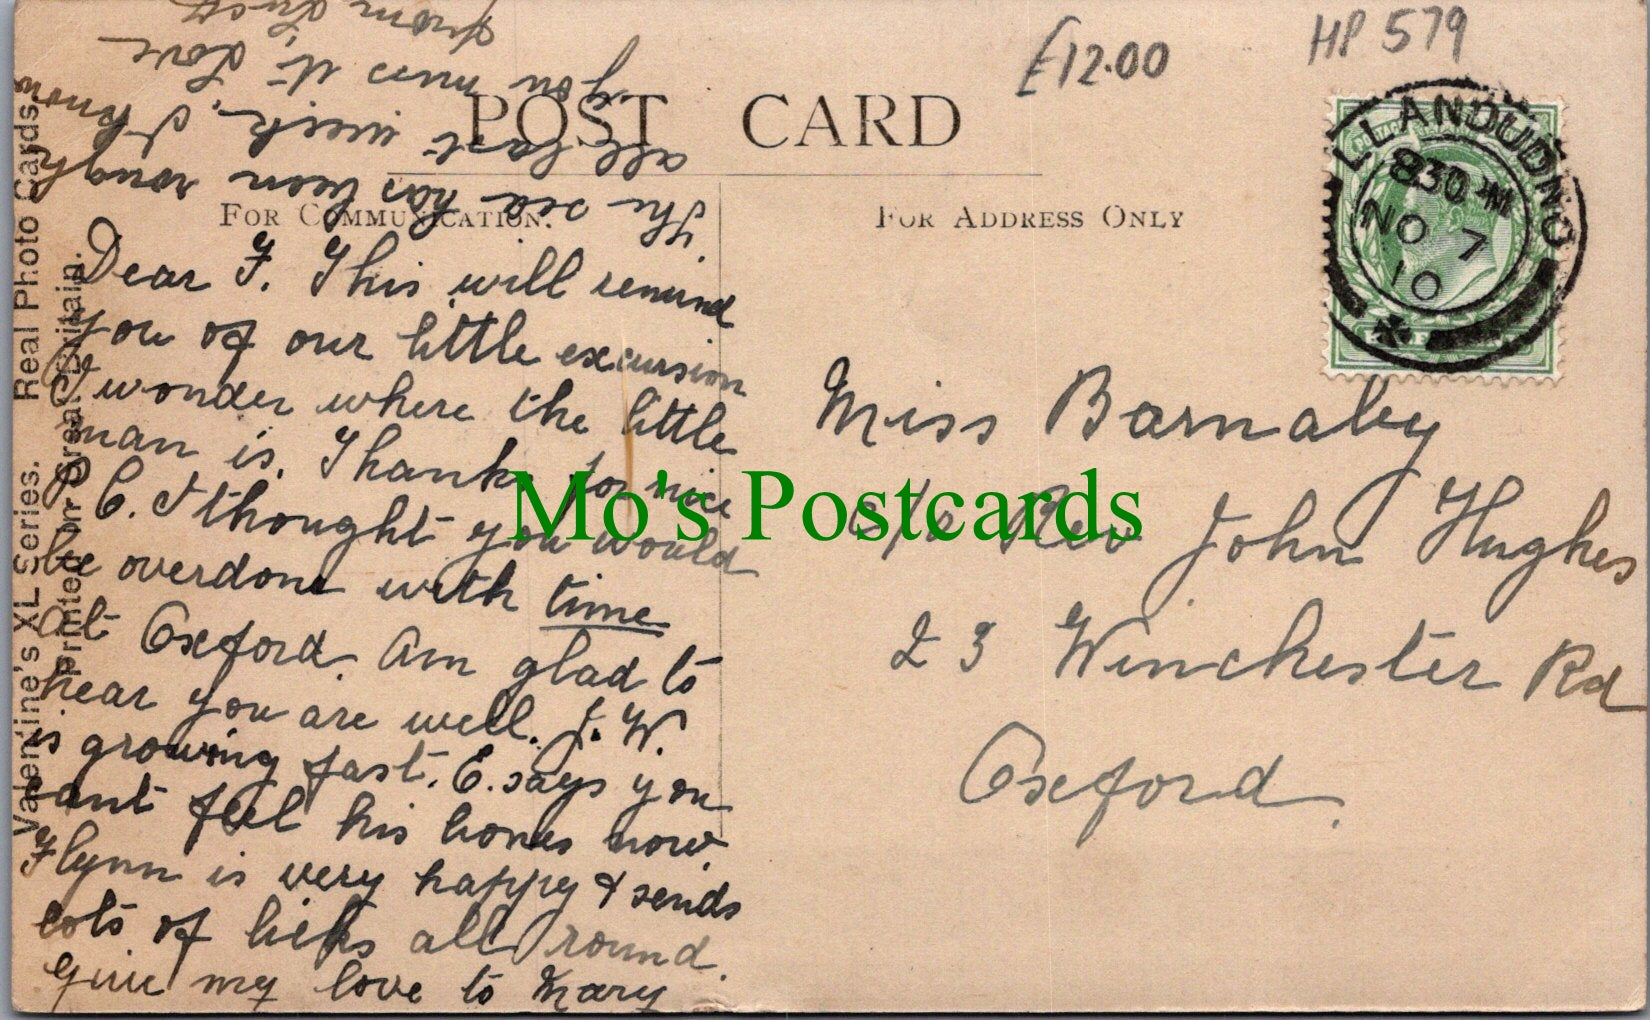 £12.00
HP 579
POST CARD
FOR COMMUNICATION.
FOR ADDRESS ONLY
LLANDUDNO
830 PM
NO 7
10
Valentine's XL Series. Real Photo Cards.
Printed in Great Britain.
Dear F. This will remind
you of our little excursion
I wonder where the little
man is. Thanks for nice
P.C. I thought you would
be overdone with time
at Oxford. Am glad to
hear you are well. J. W.
is growing fast. E. says you
cant feel his bones now.
Flynn is very happy & sends
lots of licks all round.
Give my love to Mary
The sea has been rough
all last week. I know
you miss it. Love
from
Miss Barnaby
c/o Rev John Hughes
23 Winchester Rd
Oxford.
Mo's Postcards